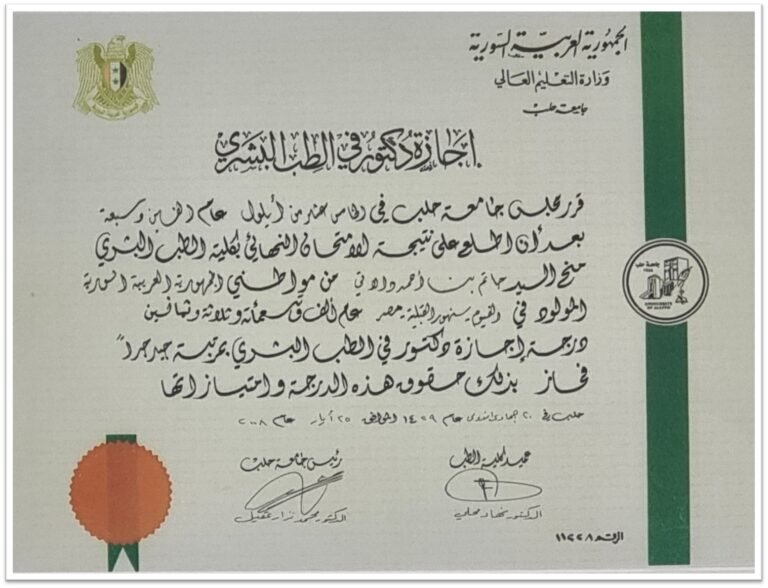 الجمهورية العربية السورية
وزارة التعليم العالي
جامعة حلب
إجازة دكتور في الطب البشري
قرر مجلس جامعة حلب في الخامس عشر من أيلول عام ألفين وسبعة
بعد أن اطلع على نتيجة الامتحان النهائي بكلية الطب البشري
منح السيد حاتم بن أحمد دالاتي من مواطني الجمهورية العربية السورية
المولود في الفيوم بسنهور القبلية بمصر عام ألف وتسعمائة وثلاثة وثمانين
درجة إجازة دكتور في الطب البشري بمرتبة جيد جداً
فحاز بذلك حقوق هذه الدرجة وامتيازاتها
حلب في ٢٠ جمادى عام ١٤٢٩ الموافق ٢٥ أيار عام ٢٠٠٨
عميد كلية الطب
رئيس جامعة حلب
الدكتور محمد نزار عقيل
الدكتور
الرقم ١١٢٢٨
جامعة حلب
UNIVERSITY
OF ALEPPO